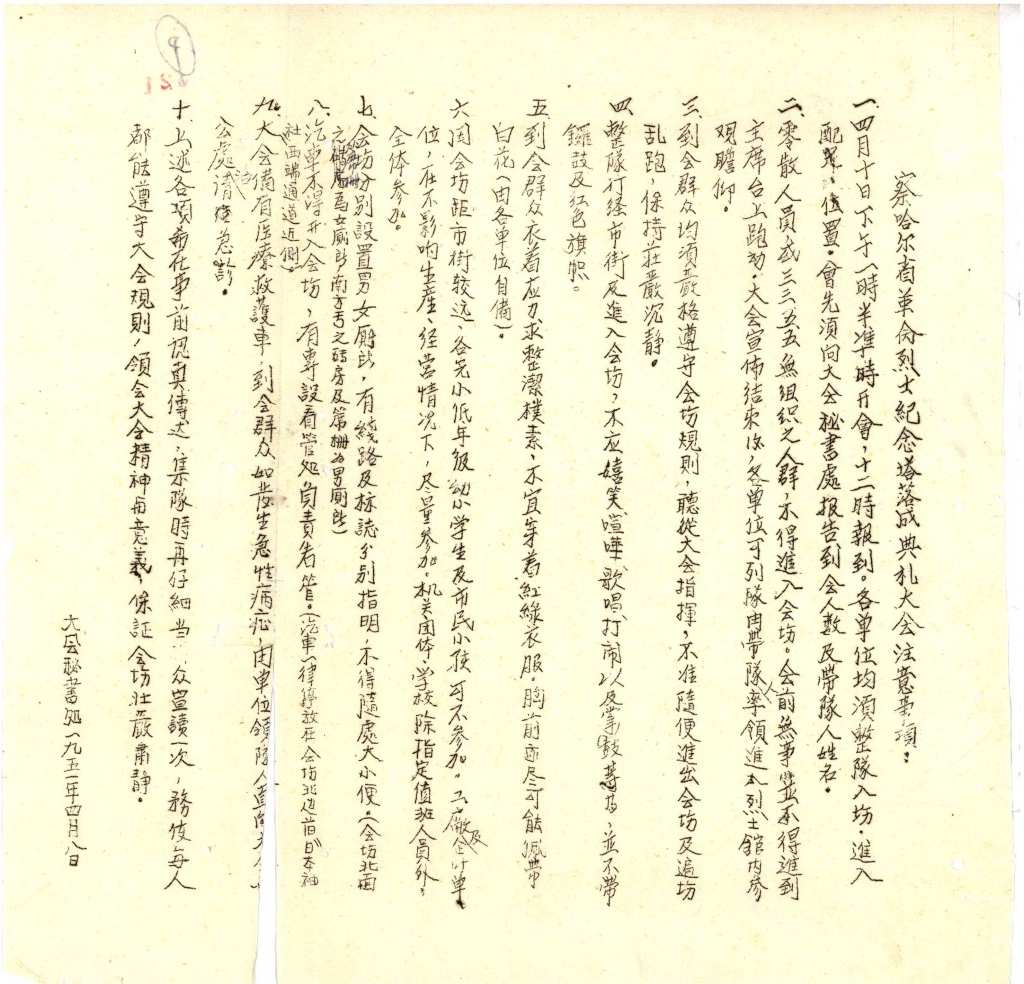 察哈尔省革命烈士紀念塔落成典礼大会注意事項：
一、四月十日下午一時半准時开會，十二時報到。各單位均須整隊入坊，進入
配䂓，位置。會先須向大会秘書處报告到会人数及帶隊人姓名。
二、零散人員或三三五五無組织之人群，不得進入会坊。会前無事並不得進到
主席台上跑动。大会宣佈結束后，各單位可列隊由帶隊人率領進入烈士館内参
观瞻仰。
三、到会群众均須严格遵守会坊規則，聽從大会指揮，不准隨便進出会坊及遍坊
乱跑，保持莊嚴沉静。
四、整隊行經市街及進入会坊，不应嬉笑喧嘩歌唱打闹以及掌鼓等，並不带
鑼鼓及红色旗帜。
五、到会群众衣着应力求整潔樸素，不宜穿着紅綠衣服。胸前亦尽可能佩带
白花（由各單位自備）。
六、因会坊距市街较远，各完小低年級幼小学生及市民小孩可不参加。工廠及企业單
位，在不影响生産、經营情况下，尽量参加。机关团体、学校除指定值班人員外，
全体参加。
七、会坊分别設置男女厕所，有綫路及标誌分别指明，不得隨處大小便。（会坊北面
之碉房為女厕所南方丐之砖房及第栅為男厕所）
八、汽車不得开入会坊，有專設看管处負責看管。（汽車一律停放在会坊北边前日本神
社西端通道近側）
九、大会備有医療救護車，到会群众如發生急性病症，由單位領隊人直向大会
公處请求急診。
十、上述各項希在事前認真傳达，集隊時再仔細当众宣讀一次，務使每人
都能遵守大会規則，領会大会精神与意義，保証会坊壮嚴肅静。
大会秘書处一九五一年四月八日